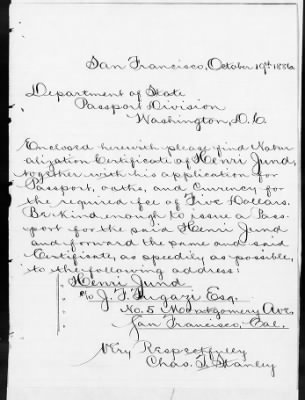 San Francisco, October 19th 1886
Department of State
Passport Division
Washington, D.C.
Enclosed herewith please find Natur
alization Certificate of Henri Jund,
together with his application for
Passport, oaths, and Currency for
the required fee of Five Dollars.
Be kind enough to issue a Pass
port for the said Henri Jund
and forward the same and said
Certificate, as speedily as possible,
to the following address:
Henri Jund
c/o J. F. Fugazi Esq.
No. 5 Montgomery Ave.
San Francisco, Cal.
Very Respectfully
Chas. T. Stanley